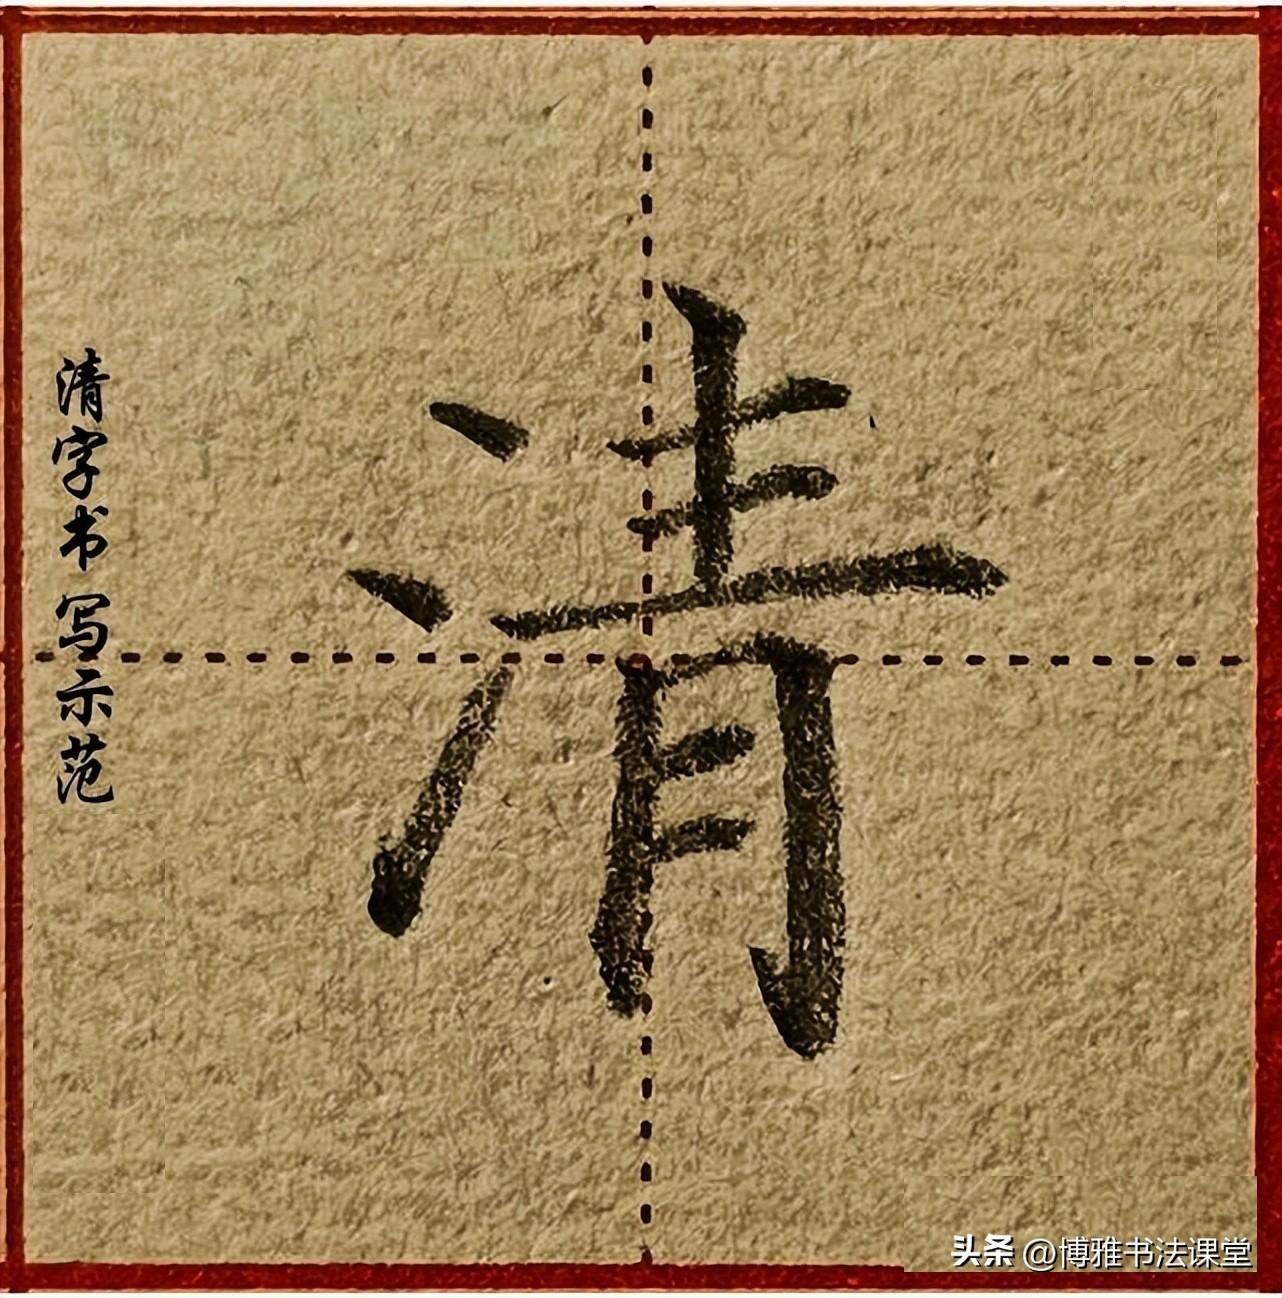 清字书写示范
清
头条 @博雅书法课堂